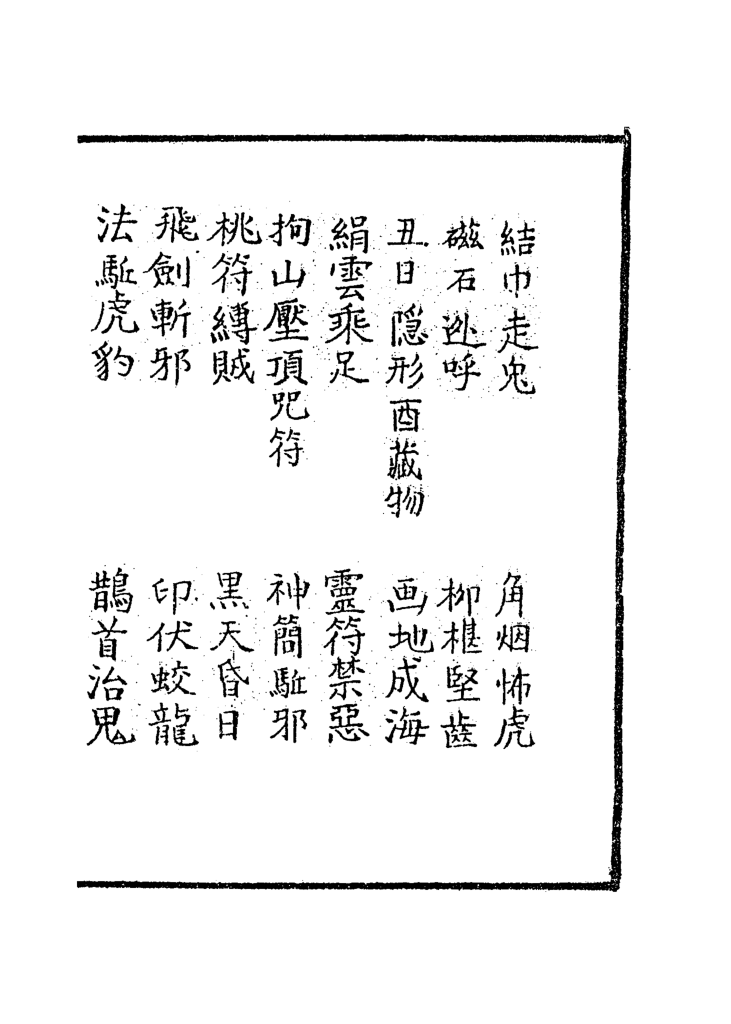 結巾走兔 角烟怖虎
磁石逃呼 柳椹堅齒
丑日隐形酉藏物 画地成海
絹雲乘足 靈符禁惡
拘山壓頂咒符 神簡駈邪
桃符縛賊 黒天昏日
飛劍斬邪 印伏蛟龍
法駈虎豹 鵲首治鬼